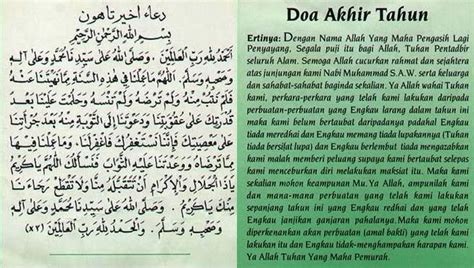 دعاء اخير تاهون
بِسْمِ اللهِ الرَّحْمٰنِ الرَّحِيْمِ
اَلْحَمْدُ لِلّٰهِ رَبِّ الْعَالَمِيْنَ . وَصَلَّى اللهُ عَلَى سَيِّدِنَا مُحَمَّدٍ وَعَلَى آلِهِ
وَصَحْبِهِ وَسَلَّمَ . اَللّٰهُمَّ مَا عَمِلْنَا فِي هٰذِهِ السَّنَةِ مِمَّا نَهَيْتَنَا عَنْهُ
فَلَمْ نَتُبْ مِنْهُ وَلَمْ تَرْضَهُ وَلَمْ نَنْسَهُ وَحَلِمْتَ عَلَيْنَا
قُدْرَتِكَ عَلَى عُقُوْبَتِنَا وَدَعَوْتَنَا إِلَى التَّوْبَةِ مِنْهُ بَعْدَ جَرَاءَتِنَا
عَلَى مَعْصِيَتِكَ فَإِنَّا نَسْتَغْفِرُكَ فَاغْفِرْ لَنَا . وَمَا عَمِلْنَا فِيْهَا
مِمَّا تَرْضَاهُ وَوَعَدْتَنَا عَلَيْهِ الثَّوَابَ فَنَسْأَلُكَ اللّٰهُمَّ يَا كَرِيْمُ
يَا ذَا الْجَلَالِ وَالْإِكْرَامِ أَنْ تَتَقَبَّلَهُ مِنَّا وَلَا تَقْطَعْ رَجَاءَنَا
مِنْكَ يَا كَرِيْمُ . وَصَلَّى اللهُ عَلَى سَيِّدِنَا مُحَمَّدٍ وَعَلَى آلِهِ
وَصَحْبِهِ وَسَلَّمَ . وَالْحَمْدُ لِلّٰهِ رَبِّ الْعَالَمِيْنَ (x٣)
Doa Akhir Tahun
Ertinya: Dengan Nama Allah Yang Maha Pengasih Lagi
Penyayang, Segala puji itu bagi Allah, Tuhan Pentadbir
seluruh Alam. Semoga Allah cucurkan rahmat dan sejahtera
atas junjungan kami Nabi Muhammad S.A.W. serta keluarga
dan sahabat-sahabat baginda sekalian. Ya Allah wahai Tuhan
kami, perkara-perkara yang telah kami lakukan daripada
perbuatan-perbuatan yang Engkau larang dalam tahun ini
maka kami belum bertaubat daripadanya padahal Engkau
tiada meredai dan Engkau memang tiada lupakannya (Tuhan
tiada bersifat lupa) dan Engkau bertindak tiada mengazabkan
kami malah memberi peluang supaya kami bertaubat selepas
kami menceburkan diri melakukan maksiat itu. Maka kami
sekalian mohon keampunan Mu. Ya Allah, ampunilah kami
dan mana-mana perbuatan yang telah kami lakukan
sepanjang tahun ini yang Engkau redhai dan yang telah
Engkau janjikan ganjaran pahalanya. Maka kami mohon
diperkenankan akan perbuatan (amal bakti) yang telah kami
lakukan itu dan Engkau tidak-menghampakan harapan kami.
Ya Allah Tuhan Yang Maha Pemurah.